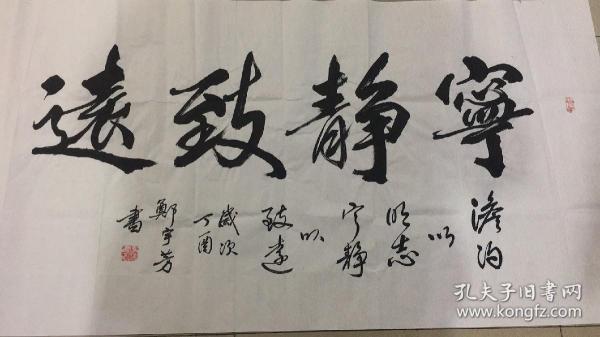 寧靜致遠
澹泊
以
明志
宁靜
以
致遠
歲次
丁酉
鄭宇芳
書
孔夫子旧书网
kongfz.com